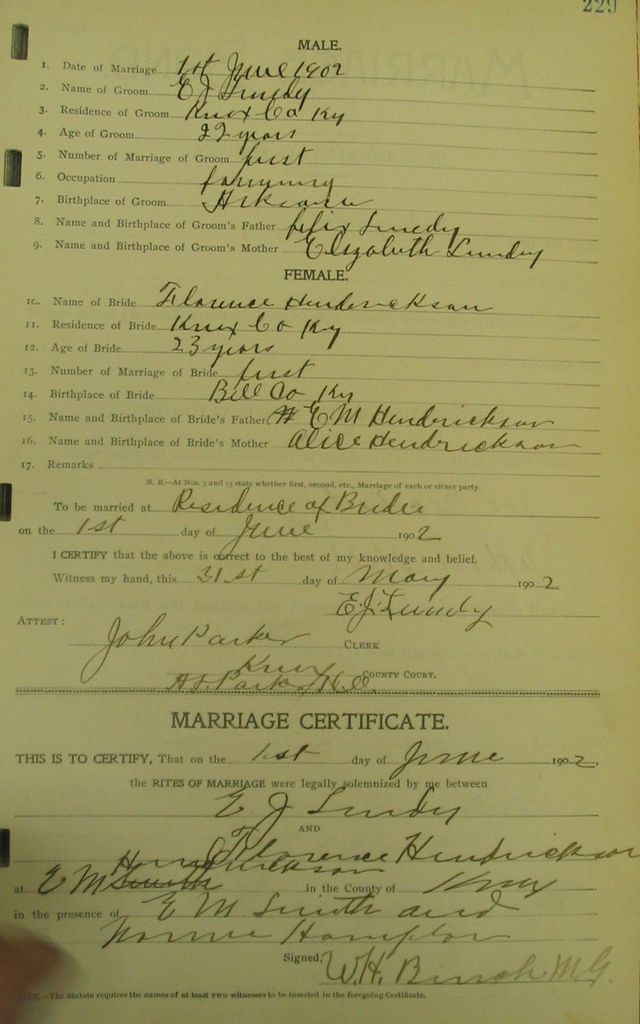 229
MALE.
1. Date of Marriage 1st June 1902
2. Name of Groom E J Lundy
3. Residence of Groom Knox Co Ky
4. Age of Groom 22 years
5. Number of Marriage of Groom first
6. Occupation
7. Birthplace of Groom
8. Name and Birthplace of Groom's Father felix Lundy
9. Name and Birthplace of Groom's Mother Elizabeth Lundy
FEMALE.
10. Name of Bride Florence Hendrickson
11. Residence of Bride Knox Co Ky
12. Age of Bride 23 years
13. Number of Marriage of Bride first
14. Birthplace of Bride Bell Co Ky
15. Name and Birthplace of Bride's Father E M Hendrickson
16. Name and Birthplace of Bride's Mother Alice Hendrickson
17. Remarks
N. B.—At Nos. 5 and 13 state whether first, second, etc., Marriage of each or either party.
To be married at Residence of Bride
on the 1st day of June 1902
I CERTIFY that the above is correct to the best of my knowledge and belief.
Witness my hand, this 31st day of May 1902
E. J. Lundy
ATTEST:
John Parker CLERK
Knox COUNTY COURT.
Parker D.C.
MARRIAGE CERTIFICATE.
THIS IS TO CERTIFY, That on the 1st day of June 1902.
the RITES OF MARRIAGE were legally solemnized by me between
E J Lundy
AND
Florence Hendrickson
Hendrickson
at E M Smith in the County of Knox
in the presence of E M Smith and
Hampton
Signed, W. H. M.G.
NOTE.—The Statute requires the names of at least two witnesses to be inserted in the foregoing Certificate.